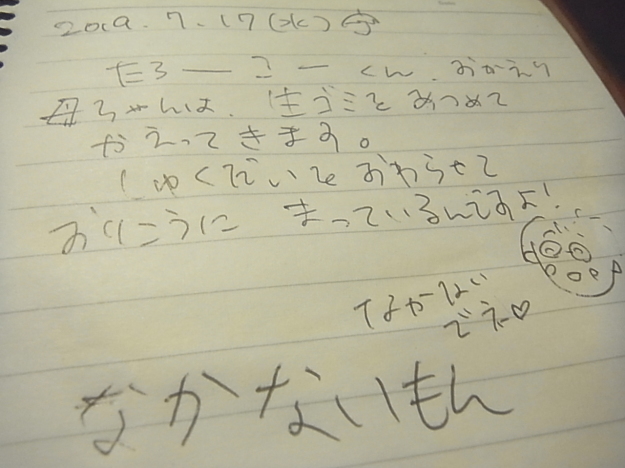 2009.7.17(水)
たろーこーくん.おかえり
母ちゃんは、生ゴミをあつめて
かえってきます。
しゅくだいをおわらせて
おりこうに まっているんですよ!
なかない
でネ♡
なかないもん